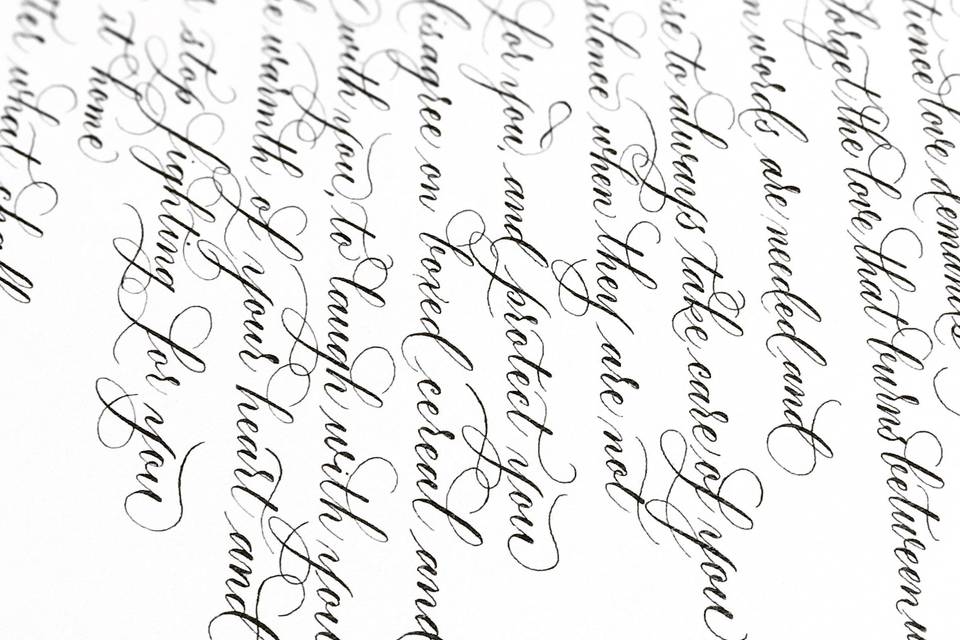 tience love demands
forget the love that burns between u
n words are needed and
se to always take care of you
silence when they are not
for you, and protect you
disagree on cereal and
with you, to laugh with you
e warmth of your heart and
stop fighting for you
it home
tter what chall